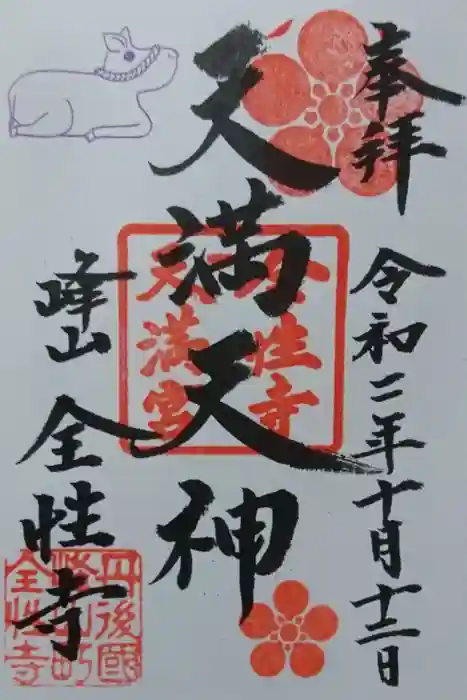 奉拝
令和二年十月十二日
天満天神
全性寺
天満宮
峰山
全性寺
丹後國
峰山町
全性寺